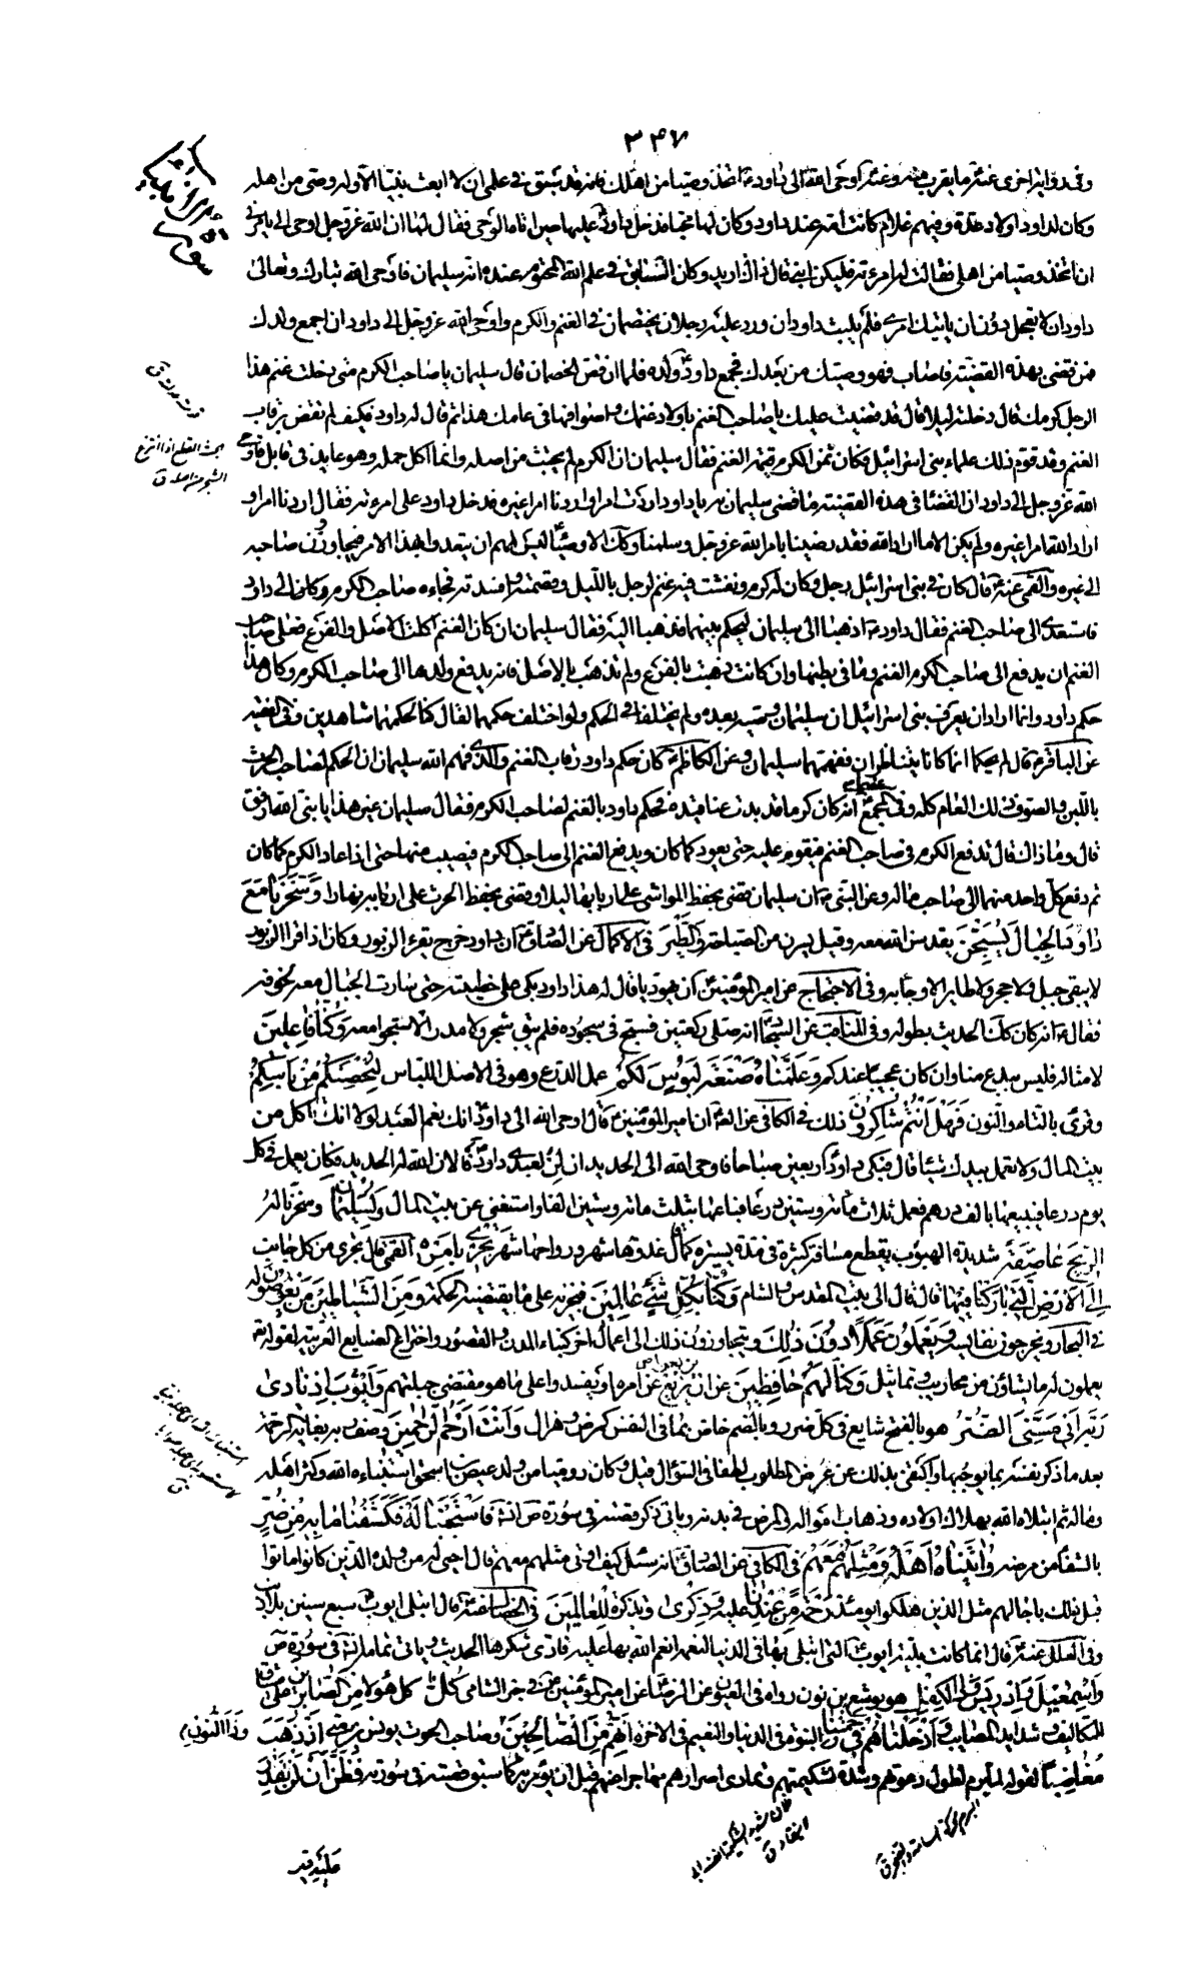 ٣٤٧
وفي رواية اخرى عنه ما يقرب منه وعنه اوحى الله الى داود ان اتخذ وصيا من اهلك فانه قد سبق في علمي ان لا ابعث نبيا الا وله وصي من اهله
وكان لداود اولاد عدة وفيهم غلام كانت امه عند داود وكان لها محبا فدخل داود عليها حين اتاه الوحي فقال لها ان الله عز وجل اوحى الي يامرني
ان اتخذ وصيا من اهلي فقالت له امرءته فليكن ابني قال ذاك اريد وكان السابق في علم الله المحتوم عنده انه سليمان فاوحى الله تبارك وتعالى الى
داود ان لا تعجل دون ان ياتيك امري فلم يلبث داود ان ورد عليه رجلان يختصمان في الغنم والكرم واوحى الله عز وجل الى داود ان اجمع ولدك
فمن قضى بهذه القضية فاصاب فهو وصيك من بعدك فجمع داود ولده فلما ان قص الخصمان قال سليمان يا صاحب الكرم متى دخلت غنم هذا
الرجل كرمك قال دخلته ليلا قال قد قضيت عليك يا صاحب الغنم باولاد غنمك واصوافها في عامك هذا ثم قال له داود فكيف لم تقض برقاب
الغنم وقد قوم ذلك علماء بني اسرائيل فكان ثمن الكرم قيمة الغنم فقال سليمان ان الكرم لم يجتث من اصله وانما اكل حمله وهو عايد في قابل فاوحى
الله عز وجل الى داود ان القضاء في هذه القضية ما قضى سليمان به يا داود اردت امرا واردنا امرا غيره فدخل داود على امرءته فقال اردنا امرا و
اراد الله امرا غيره ولم يكن الا ما اراد الله فقد رضينا بامر الله عز وجل وسلمنا وكذلك الاوصياء ليس لهم ان يتعدوا بهذا الامر فيجاوزون صاحبه
الى غيره والقمي عنه قال كان في بني اسرائيل رجل وكان له كرم ونفشت فيه غنم لرجل بالليل وقضمته وافسدته فجاء صاحب الكرم الى داود
فاستعدى على صاحب الغنم فقال داود اذهبا الى سليمان ليحكم بينكما فذهبا اليه فقال سليمان ان كان الغنم اكلت الاصل والفرع فعلى صاحب
الغنم ان يدفع الى صاحب الكرم الغنم وما في بطنها وان كانت ذهبت بالفرع ولم تذهب بالاصل فانه يدفع ولدها الى صاحب الكرم وكان هذا
حكم داود وانما اراد ان يعرف بني اسرائيل ان سليمان وصيه بعده ولم يختلفا في الحكم ولو اختلف حكمهما لقال كنا لحكمهما شاهدين وفي الفقيه
عن الباقر قال لم يحكما انما كانا يتناظران ففهمها سليمان وعن الكاظم كان حكم داود رقاب الغنم والذي فهم الله سليمان ان الحكم لصاحب الحرث
باللبن والصوف ذلك العام كله وفي المجمع عنهما انه كان كرما قد بدت عناقيده فحكم داود بالغنم لصاحب الكرم فقال سليمان غير هذا يا نبي الله ارفق
قال وما ذاك قال تدفع الكرم الى صاحب الغنم فيقوم عليه حتى يعود كما كان ويدفع الغنم الى صاحب الكرم فيصيب منها حتى اذا عاد الكرم كما كان
ثم دفع كل واحد منهما الى صاحبه ماله وعن النبي ان سليمان قضى بحفظ المواشي على اربابها ليلا وقضى بحفظ الحرث على اربابه نهارا وَسَخَّرْنَا مَعَ
دَاوُدَ الْجِبَالَ يُسَبِّحْنَ يقدسن الله معه وقيل يسرن من السباحة وَالطَّيْرَ في الاكمال عن الصادق ان داود خرج يقرء الزبور وكان اذا قرا الزبور
لا يبقى جبل ولا حجر ولا طاير الا جاوبه وفي الاحتجاج عن امير المؤمنين ان يهوديا قال له هذا داود بكى على خطيئته حتى سارت الجبال معه لخوفه
فقال انه كان كذلك الحديث بطوله وفي المناقب عن السجاد انه صلى ركعتين فسبح في سجوده فلم يبق شجر ولا مدر الا سبحوا معه وَكُنَّا فَاعِلِينَ
لامثاله فليس ببدع منا وان كان عجيبا عندكم وَعَلَّمْنَاهُ صَنْعَةَ لَبُوسٍ لَكُمْ عمل الدرع وهو في الاصل اللباس لِتُحْصِنَكُمْ مِنْ بَأْسِكُمْ
وقرئ بالتاء والنون فَهَلْ أَنْتُمْ شَاكِرُونَ ذلك في الكافي عن الصادق ان امير المؤمنين قال اوحى الله الى داود انك نعم العبد لولا انك تاكل من
بيت المال ولا تعمل بيدك شيئا قال فبكى داود اربعين صباحا فاوحى الله الى الحديد ان لن لعبدي داود فالان الله له الحديد فكان يعمل في كل
يوم درعا فيبيعها بالف درهم فعمل ثلاث مائة وستين درعا فباعها بثلث مائة وستين الفا واستغنى عن بيت المال وَلِسُلَيْمَانَ وسخرنا له
الرِّيحَ عَاصِفَةً شديدة الهبوب يقطع مسافة كثيرة في مدة يسيرة كما قال غدوها شهر ورواحها شهر تَجْرِي بِأَمْرِهِ القمي قال تجري من كل جانب
إِلَى الْأَرْضِ الَّتِي بَارَكْنَا فِيهَا قال الى بيت المقدس والشام وَكُنَّا بِكُلِّ شَيْءٍ عَالِمِينَ فنجريه على ما يقتضيه الحكمة وَمِنَ الشَّيَاطِينِ مَنْ يَغُوصُونَ لَهُ
في البحار ويخرجون نفايسه وَيَعْمَلُونَ عَمَلًا دُونَ ذَلِكَ ويتجاوزون ذلك الى اعمال اخر كبناء المدن والقصور واختراع الصنايع الغريبة لقوله تعالى
يعملون له ما يشاء من محاريب وتماثيل وَكُنَّا لَهُمْ حَافِظِينَ عن ان يزيغوا عن امره او يفسدوا على ما هو مقتضى جبلتهم وَأَيُّوبَ إِذْ نَادَى
رَبَّهُ أَنِّي مَسَّنِيَ الضُّرُّ هو بالفتح شايع في كل ضرر وبالضم خاص بما في النفس كمرض وهزال وَأَنْتَ أَرْحَمُ الرَّاحِمِينَ وصف ربه بغاية الرحمة
بعد ما ذكر نفسه بما يوجبها واكتفى بذلك عن عرض المطلوب لطفا في السؤال قيل وكان روميا من ولد عيص بن اسحق استنباه الله وكثر اهله
وماله ثم ابتلاه الله بهلاك اولاده وذهاب امواله والمرض في بدنه وياتي ذكر قصته في سورة ص انشاء الله فَاسْتَجَبْنَا لَهُ فَكَشَفْنَا مَا بِهِ مِنْ ضُرٍّ
بالشفاء من مرضه وَآتَيْنَاهُ أَهْلَهُ وَمِثْلَهُمْ مَعَهُمْ في الكافي عن الصادق انه سئل كيف اوتي مثلهم معهم قال احيى له من ولده الذين كانوا ماتوا
قبل ذلك باجالهم مثل الذين هلكوا يومئذ رَحْمَةً مِنْ عِنْدِنَا عليه وَذِكْرَى وتذكرة لِلْعَابِدِينَ في الخصال عنه قال ابتلى ايوب سبع سنين بلا ذنب
وفي العلل عنه قال انما كانت بلية ايوب التي ابتلي بها في الدنيا لنعمة انعم الله بها عليه فادى شكرها الحديث وياتي تمامه في سورة ص
وَإِسْمَعِيلَ وَإِدْرِيسَ وَذَا الْكِفْلِ هو يوشع بن نون رواه في العيون عن الرضا عن امير المؤمنين في خبر الشامي كُلٌّ كل هؤلاء مِنَ الصَّابِرِينَ على مشاق
التكاليف وشدايد المصايب وَأَدْخَلْنَاهُمْ فِي رَحْمَتِنَا النبوة في الدنيا والنعيم في الاخرة إِنَّهُمْ مِنَ الصَّالِحِينَ وَذَا النُّونِ وصاحب الحوت يونس بن متى إِذْ ذَهَبَ
مُغَاضِبًا لقومه لما برم لطول دعوتهم وشدة شكيمتهم وتمادي اصرارهم مهاجرا عنهم قبل ان يؤمر به كما سبق قصته في سورته فَظَنَّ أَنْ لَنْ نَقْدِرَ
عَلَيْهِ